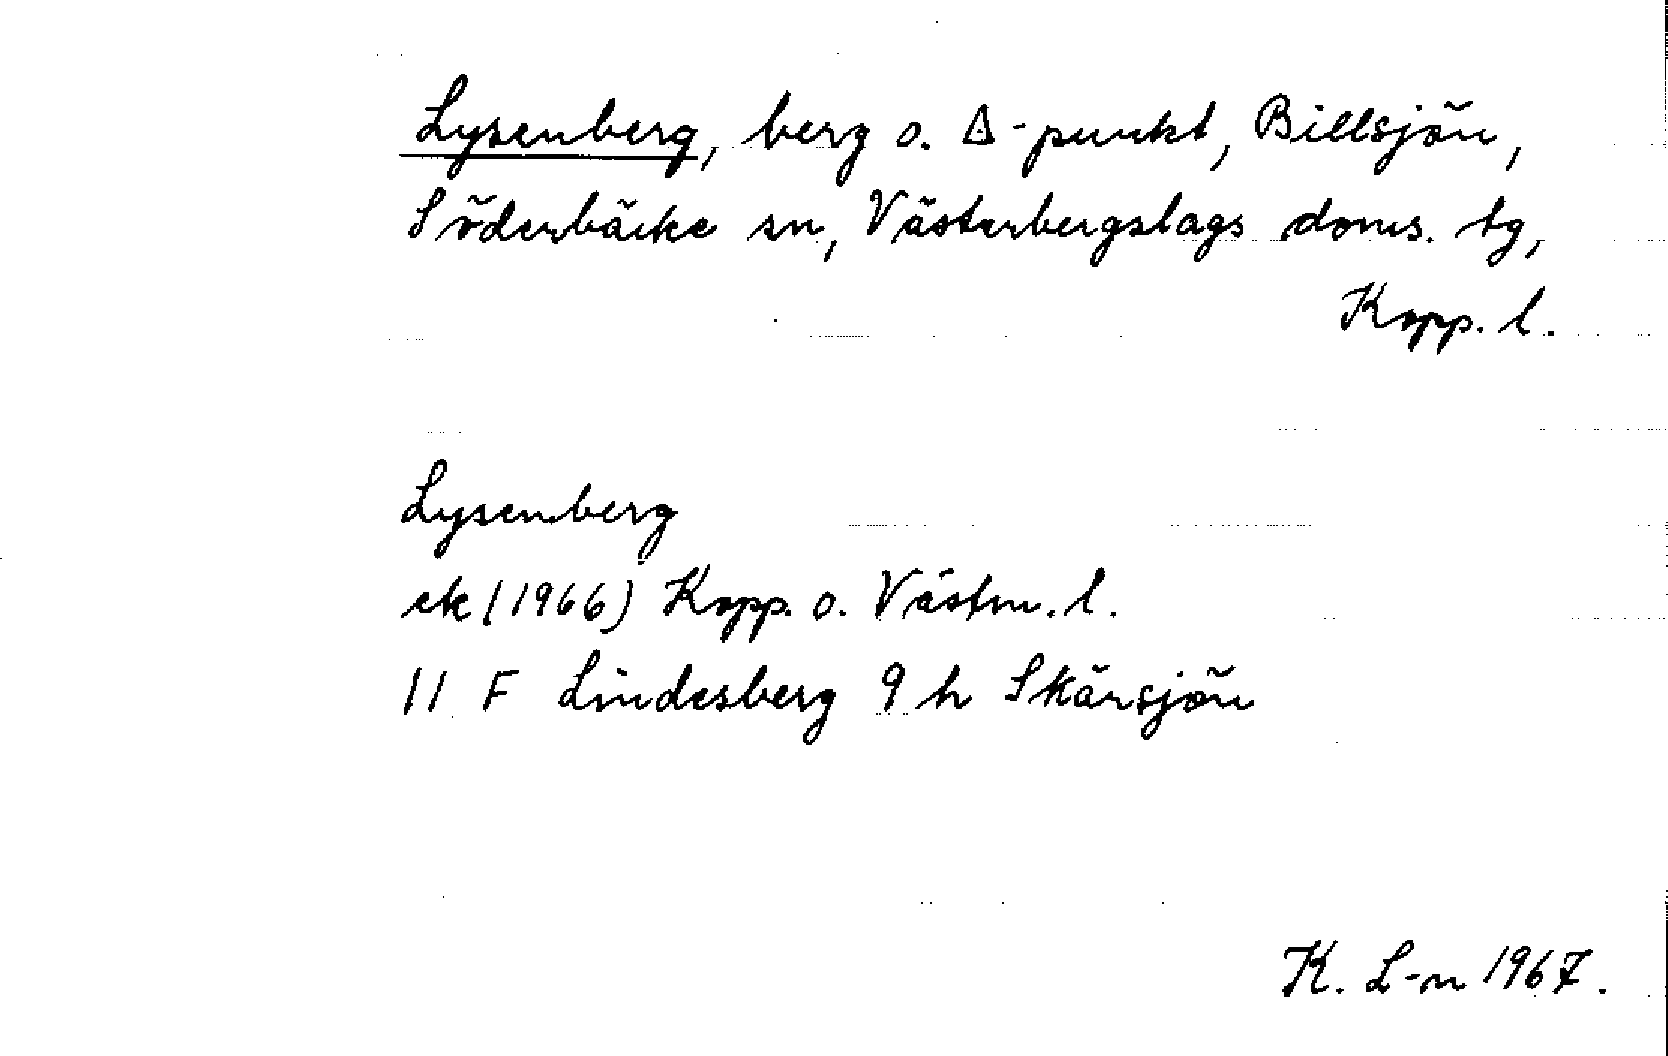 Lysenberg, berg o. Δ-punkt, Billsjön,
Söderbärke sn, Västerbergslags doms. tg,
Kopp. l.
Lysenberg
ek (1966) Kopp. o. Västm. l.
11 F Lindesberg 9 h Skärsjön
K. L-n 1967.